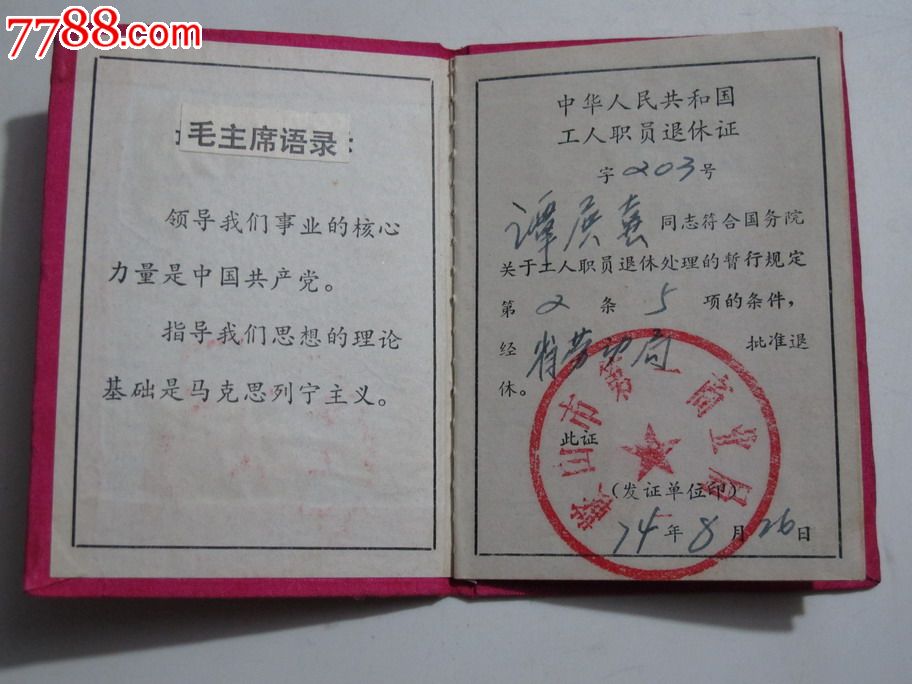 7788.com
毛主席语录
领导我们事业的核心
力量是中国共产党。
指导我们思想的理论
基础是马克思列宁主义。
中华人民共和国
工人职员退休证
字203号
同志符合国务院
关于工人职员退休处理的暂行规定
第 2 条 5 项的条件，
经 省劳动局 批准退
休。
此证
(发证单位印)
74年8月26日
鞍山市第一商业局